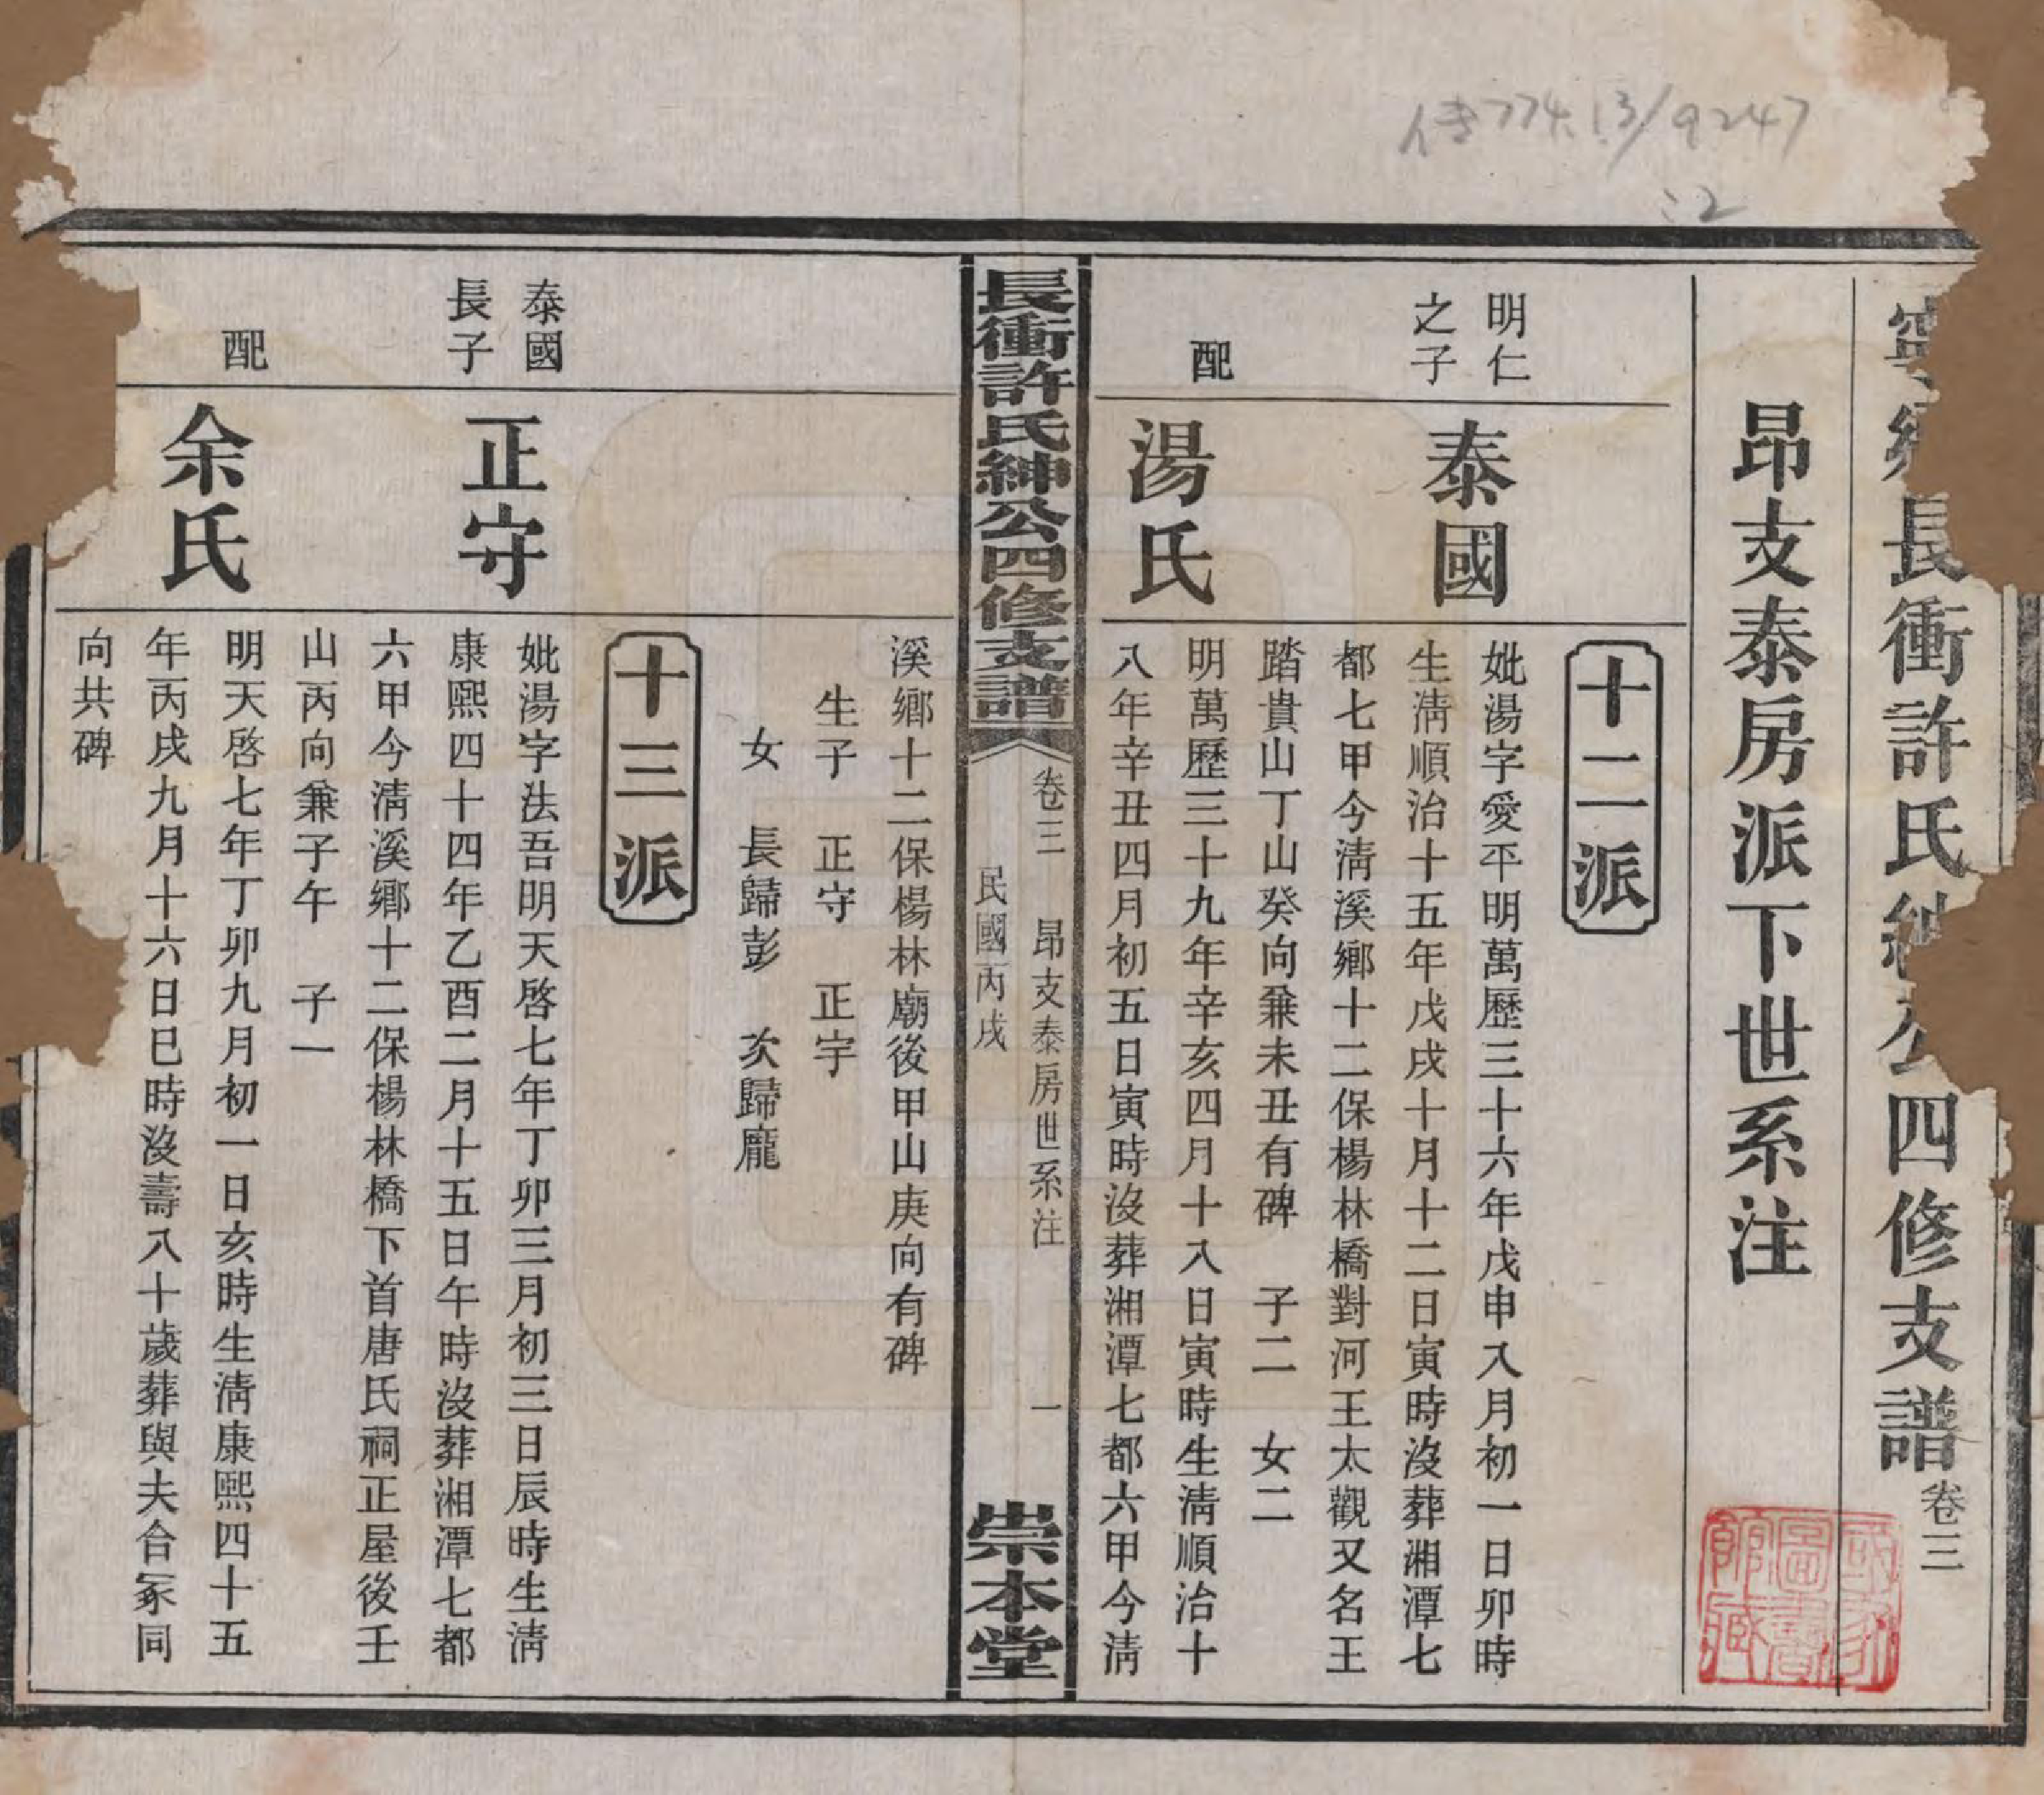 侍774.13/9247
:2
長衝許氏紳公四修支譜卷三
昂支泰房派下世系注
十二派
明仁
之子
泰國
妣湯字愛平明萬歷三十六年戊申八月初一日卯時
生淸順治十五年戊戌十月十二日寅時沒葬湘潭七
都七甲今淸溪鄉十二保楊林橋對河王太觀又名王
踏貴山丁山癸向兼未丑有碑 子二 女二
配
湯氏
明萬歷三十九年辛亥四月十八日寅時生淸順治十
八年辛丑四月初五日寅時沒葬湘潭七都六甲今淸
長衝許氏紳公四修支譜
卷三 昂支泰房世系注 一
民國丙戌
崇本堂
溪鄉十二保楊林廟後甲山庚向有碑
生子 正守 正宇
女 長歸彭 次歸龐
十三派
泰國
長子
正守
妣湯字法吾明天啓七年丁卯三月初三日辰時生淸
康熙四十四年乙酉二月十五日午時沒葬湘潭七都
六甲今淸溪鄉十二保楊林橋下首唐氏祠正屋後壬
山丙向兼子午 子一
配
余氏
明天啓七年丁卯九月初一日亥時生淸康熙四十五
年丙戌九月十六日巳時沒壽八十歲葬與夫合冢同
向共碑
國家
圖書
館藏